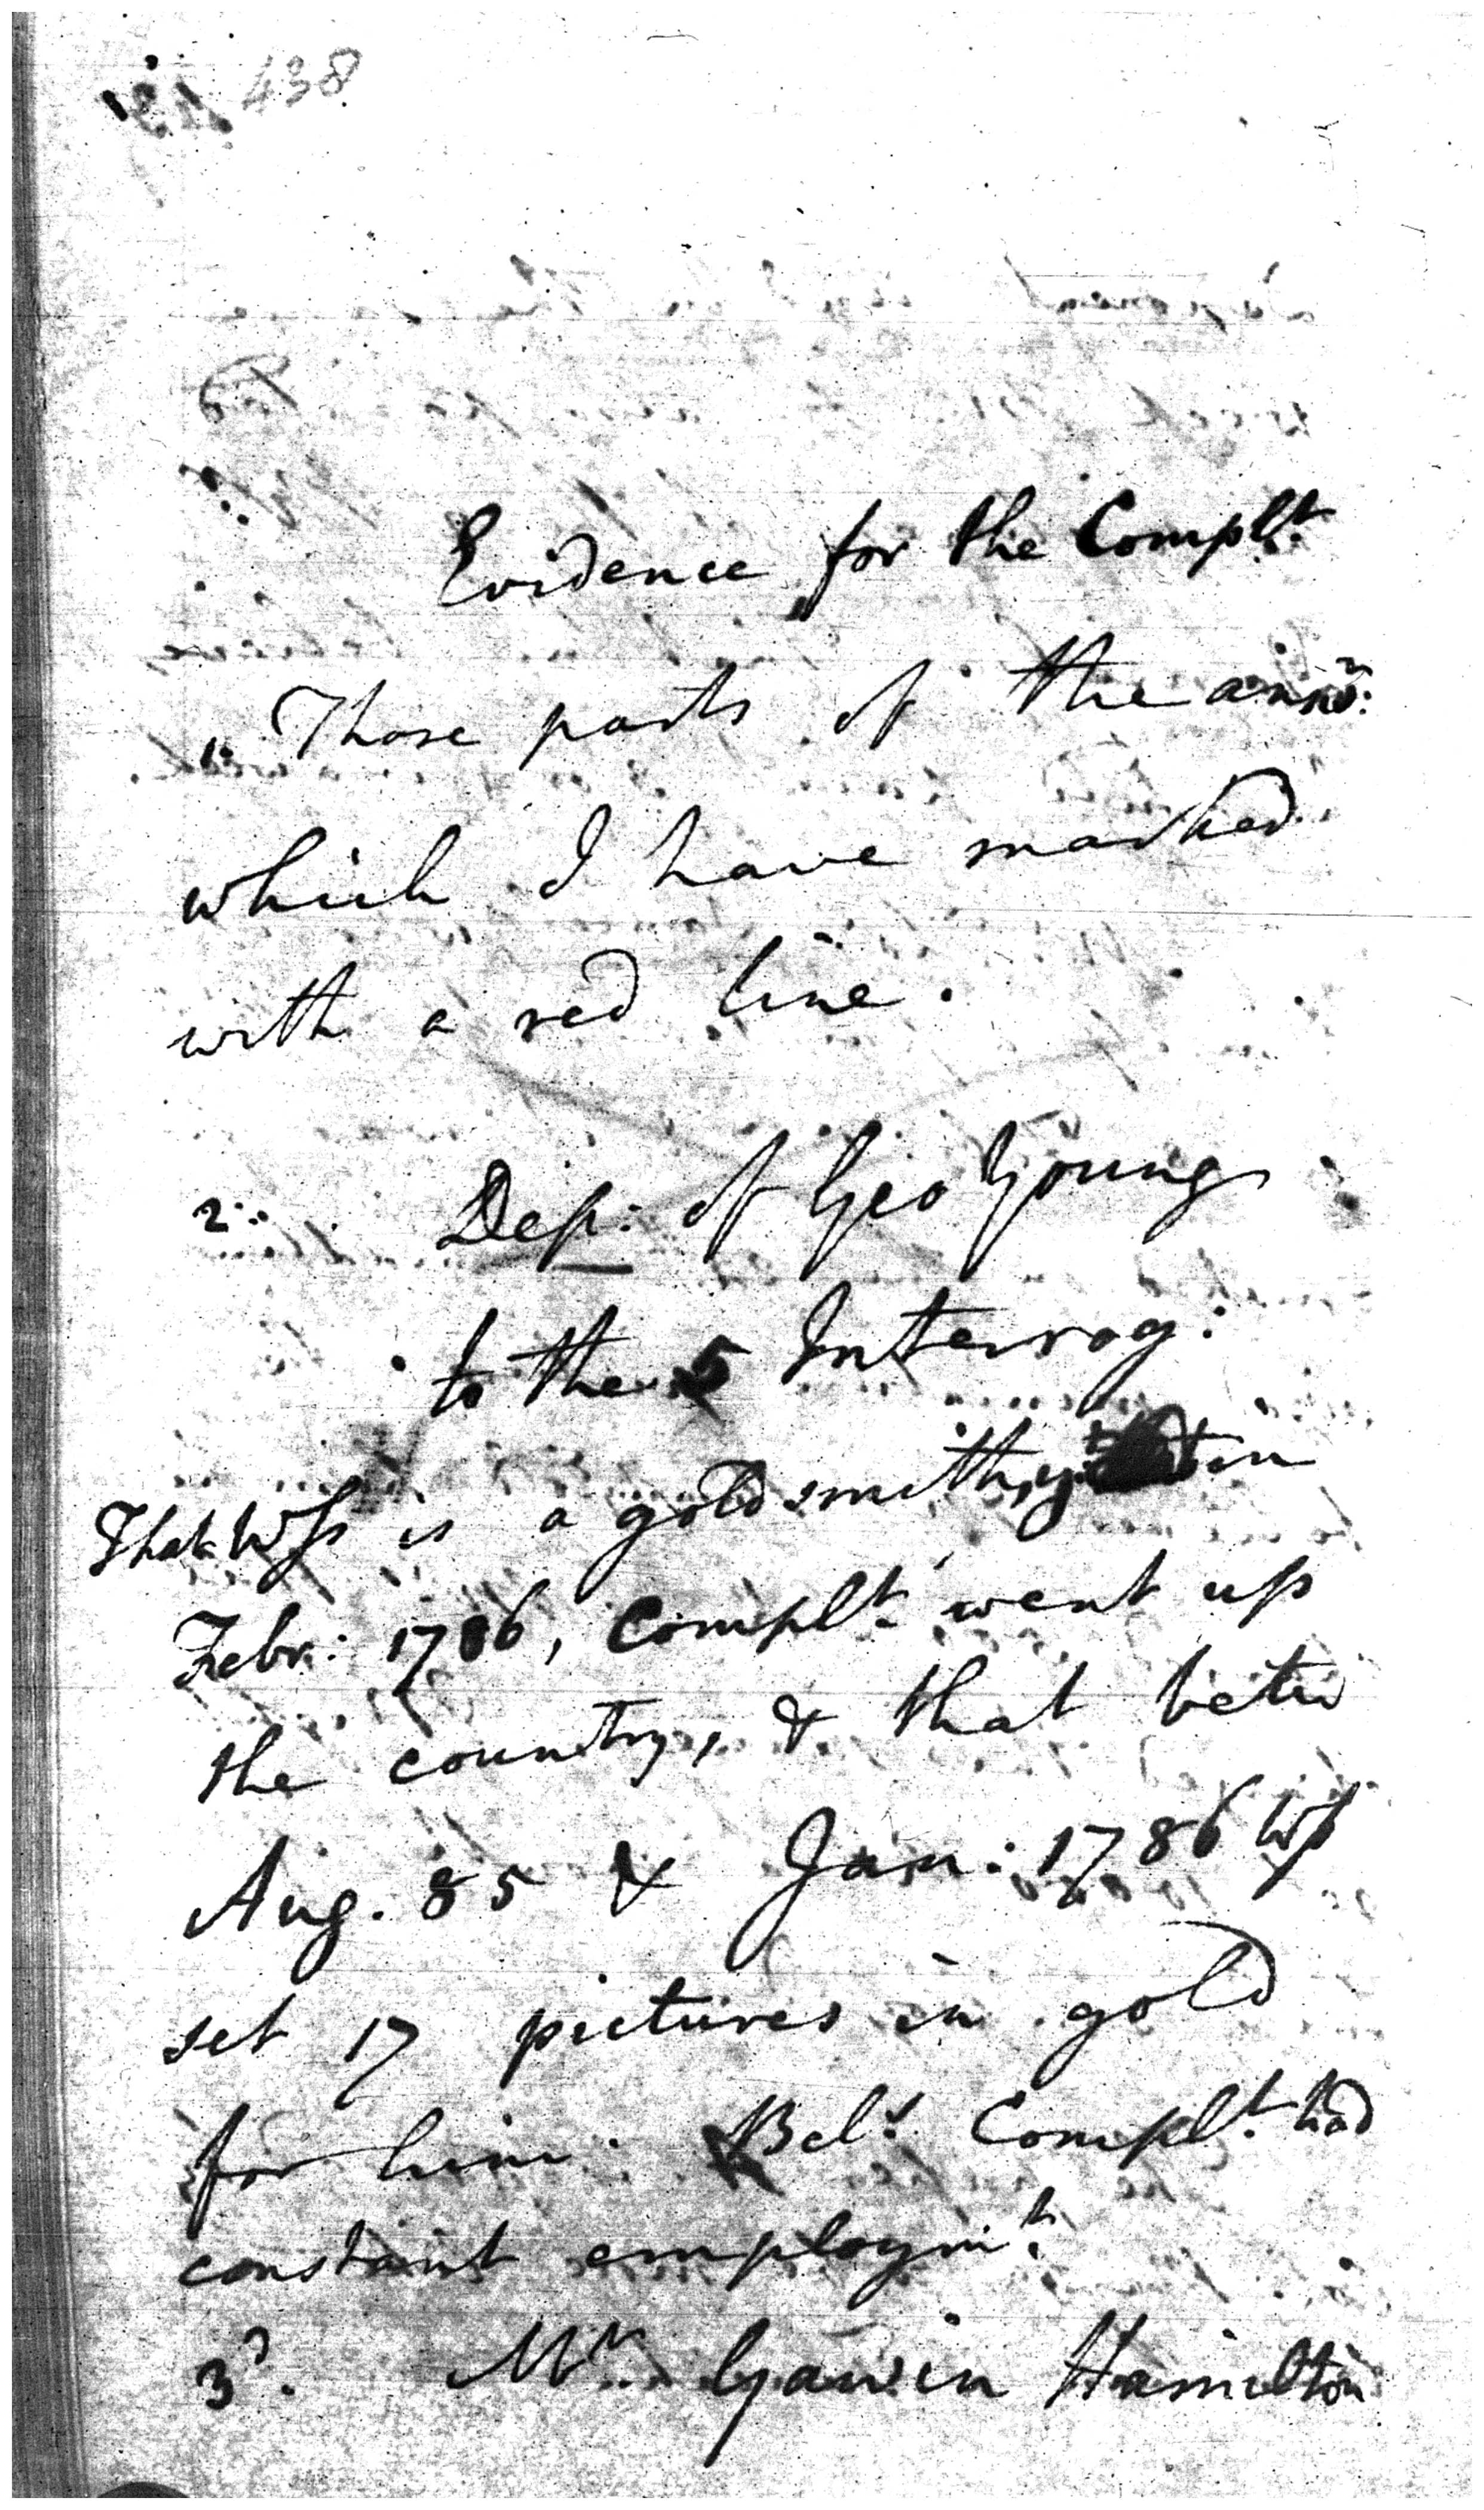 438
Evidence for the Complt.
1. Those parts of the answr:
which I have marked
with a red line.
2. Dep: of Geo Young
to the 5 Interrog:
That Wss is a goldsmith, yt in
Febr: 1786, Complt. went up
the country, & that betw
Aug. 85 & Jan: 1786 Wss
set 17 pictures in gold
for him. Bels. Complt. had
constant employmt.
3d. Mr. Gawin Hamilton